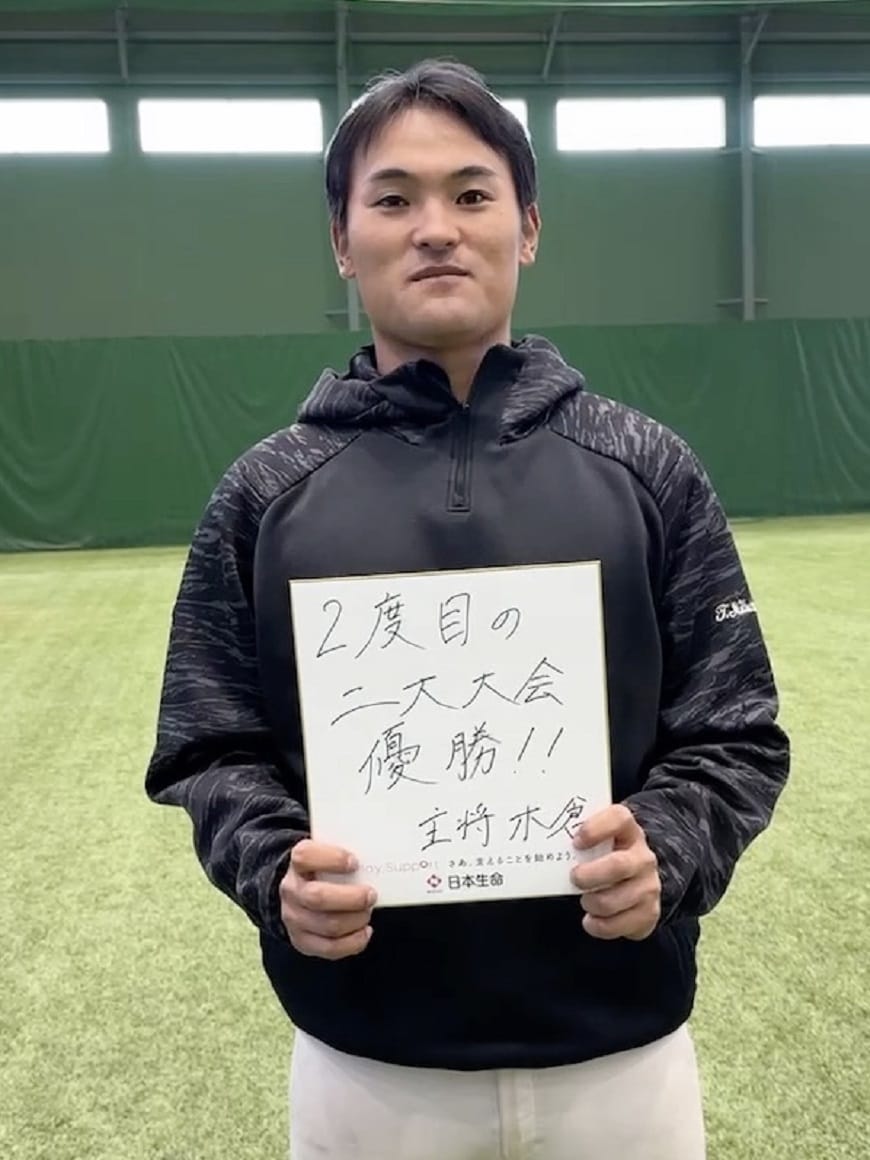 2度目の
二大大会
優勝!!
主将 木倉
Play,Support さあ、支えることを始めよう。
日本生命